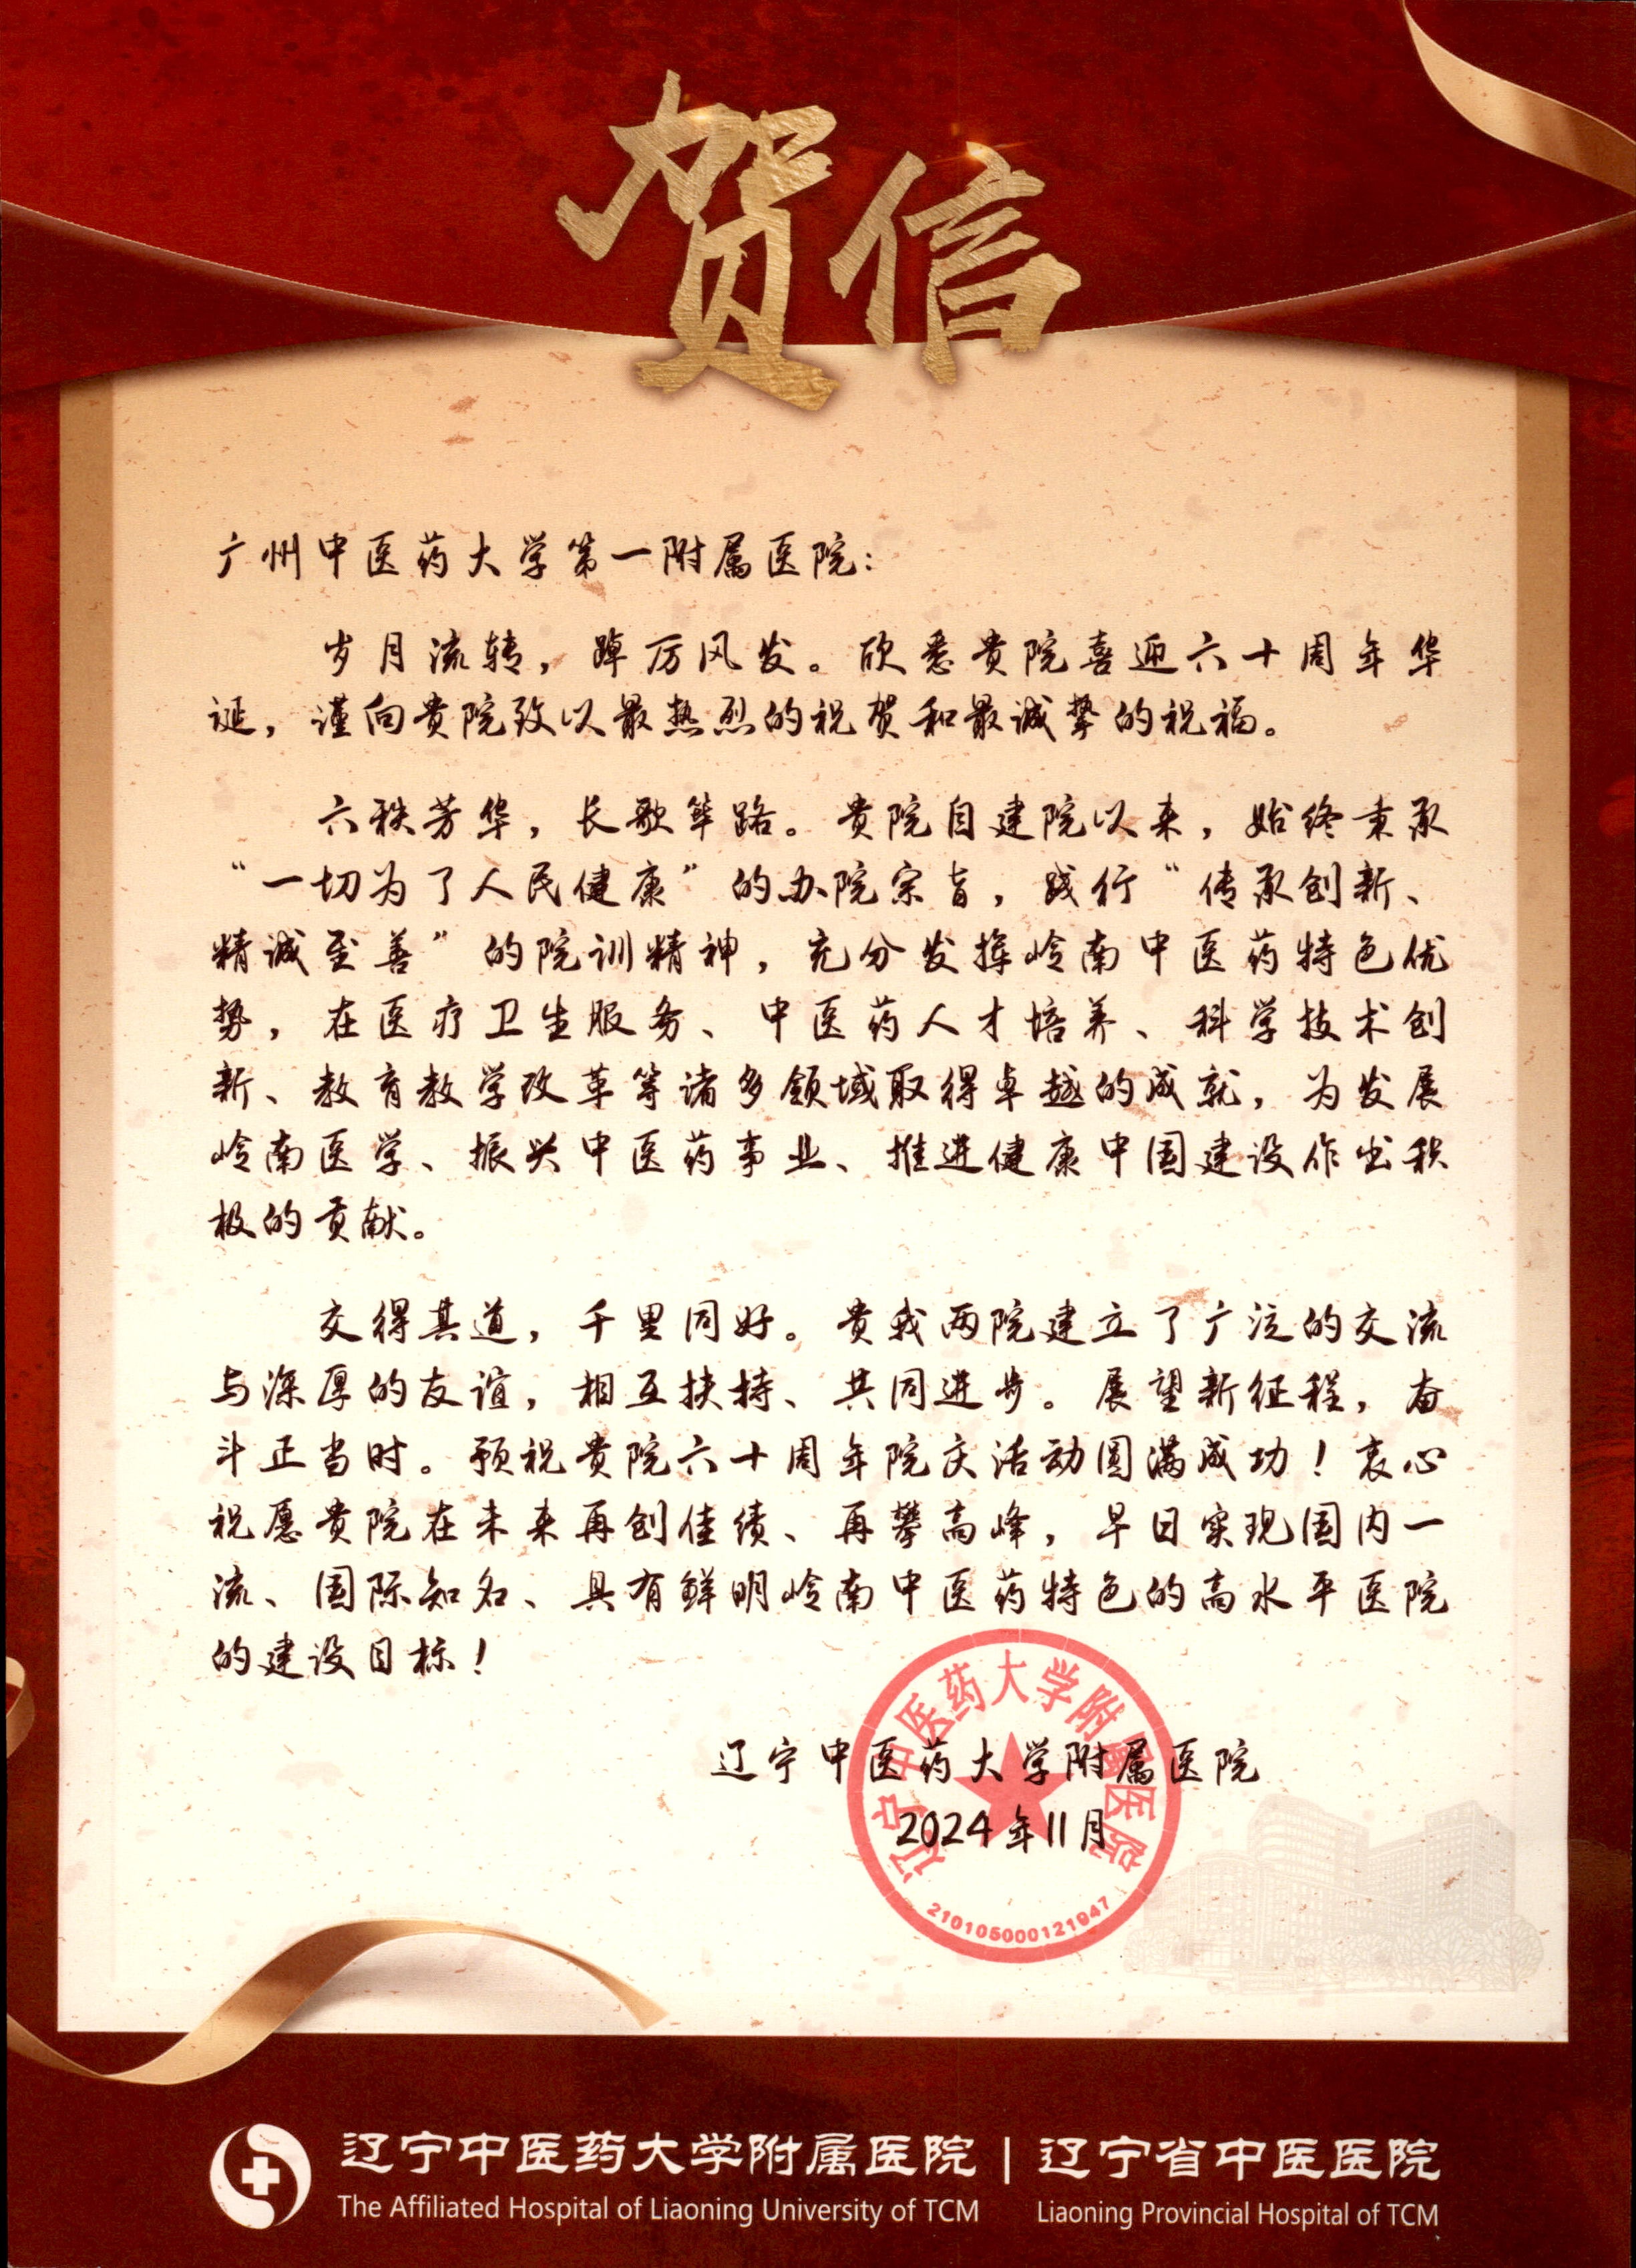 贺信
广州中医药大学第一附属医院：
岁月流转，踔厉风发。欣悉贵院喜迎六十周年华
诞，谨向贵院致以最热烈的祝贺和最诚挚的祝福。
六秩芳华，长歌筚路。贵院自建院以来，始终秉承
“一切为了人民健康”的办院宗旨，践行“传承创新、
精诚至善”的院训精神，充分发挥岭南中医药特色优
势，在医疗卫生服务、中医药人才培养、科学技术创
新、教育教学改革等诸多领域取得卓越的成就，为发展
岭南医学、振兴中医药事业、推进健康中国建设作出积
极的贡献。
交得其道，千里同好。贵我两院建立了广泛的交流
与深厚的友谊，相互扶持、共同进步。展望新征程，奋
斗正当时。预祝贵院六十周年院庆活动圆满成功！衷心
祝愿贵院在未来再创佳绩、再攀高峰，早日实现国内一
流、国际知名、具有鲜明岭南中医药特色的高水平医院
的建设目标！
辽宁中医药大学附属医院
2024年11月
辽宁中医药大学附属医院
210105000121947
辽宁中医药大学附属医院 | 辽宁省中医医院
The Affiliated Hospital of Liaoning University of TCM Liaoning Provincial Hospital of TCM